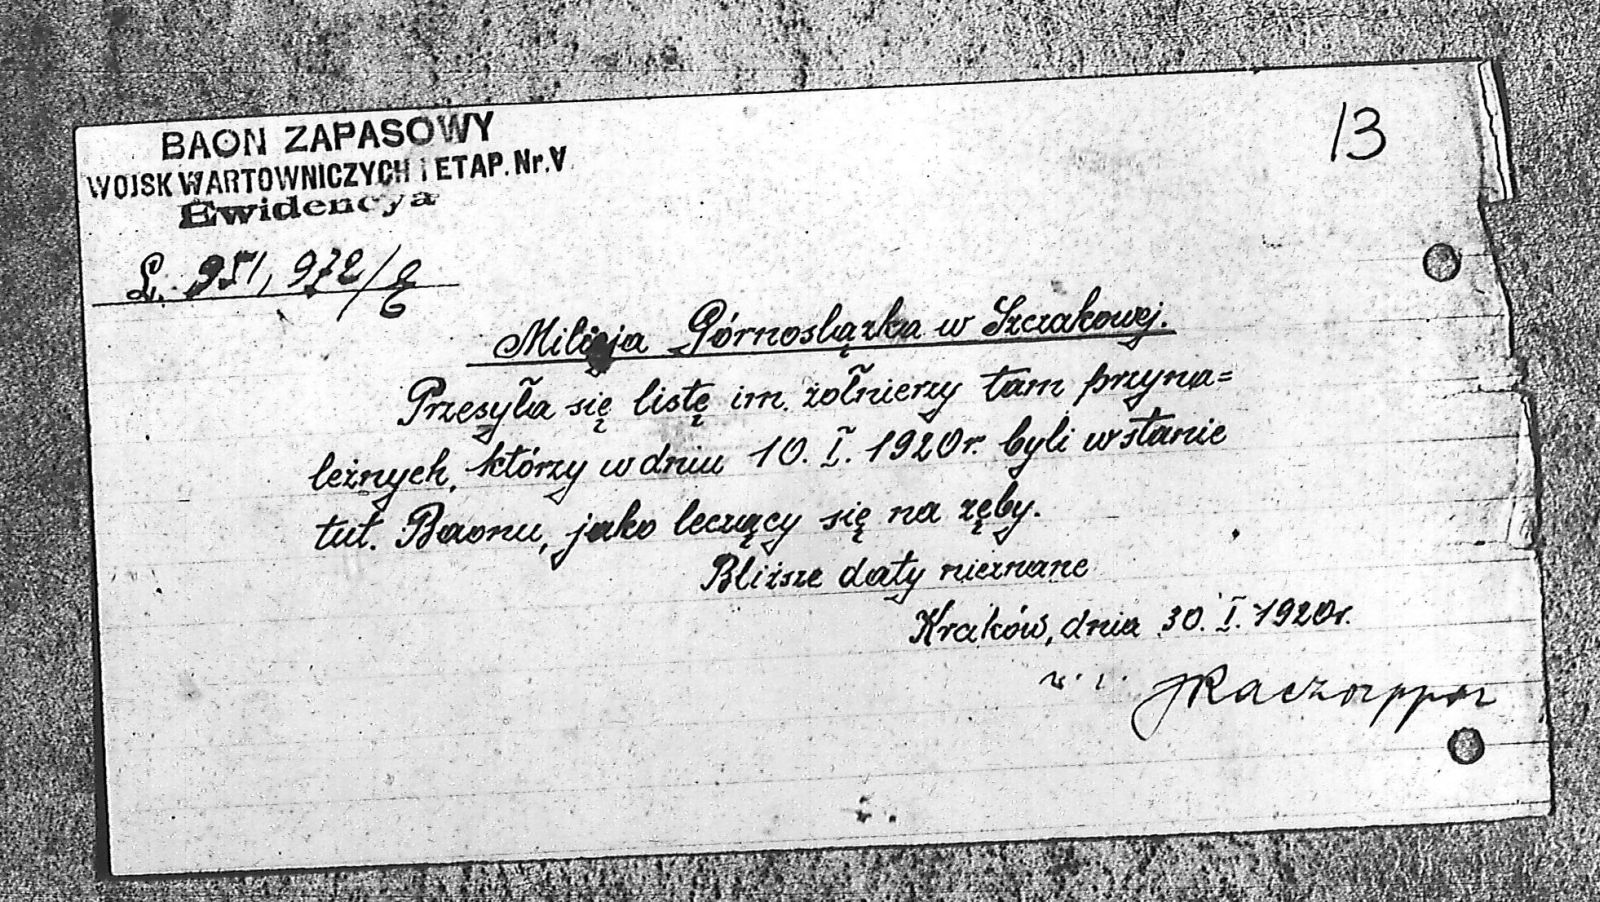 13
BAON ZAPASOWY
WOJSK WARTOWNICZYCH i ETAP. Nr. V
Ewidencya
L. 951, 972/E
Milicja Górnoslązka w Szczakowej.
Przesyła się listę im. żołnierzy tam przyna=
leżnych, którzy w dniu 10. I. 1920r. byli w stanie
tut. Baonu, jako leczący się na zęby.
Bliższe daty nieznane
Kraków, dnia 30. I. 1920r.